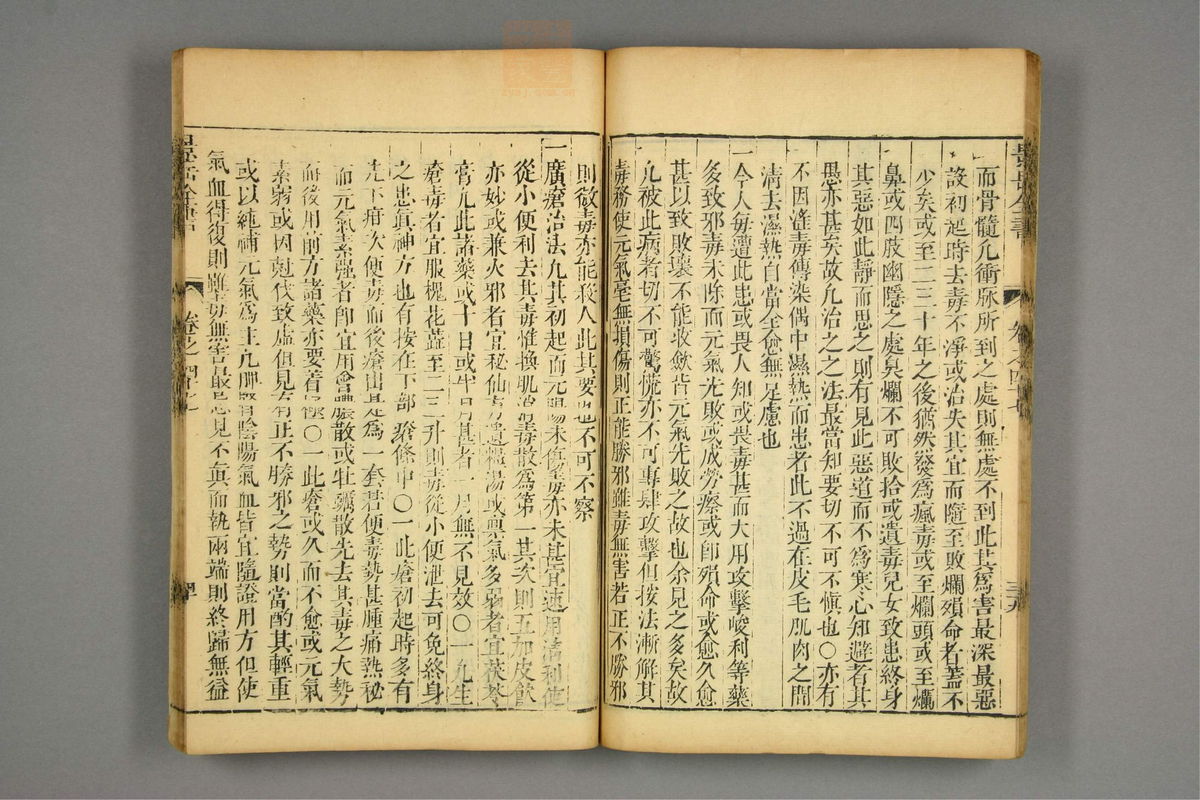 景岳全書
卷之四
三九
而骨髓凡衝脉所到之處則無處不到此其爲害最深最惡
設初起時去毒不淨或治失其宜而隨至敗爛殞命者蓋不
少矣或至二三十年之後猶然發爲瘋毒或至爛頭或至爛
鼻或四肢幽隱之處臭爛不可敗拾或遺毒兒女致患終身
其惡如此靜而思之則有見此惡道而不爲寒心知避者其
愚亦甚矣故凡治之之法最當知要切不可不愼也〇亦有
不因淫毒傳染偶中濕熱而患者此不過在皮毛肌肉之間
清去濕熱自當全愈無足慮也
一今人每遭此患或畏人知或畏毒甚而大用攻擊峻利等藥
多致邪毒未除而元氣先敗或成勞瘵或卽殞命或愈久愈
甚以致敗壞不能收斂皆元氣先敗之故也余見之多矣故
凡被此病者切不可驚慌亦不可專肆攻擊但按法漸解其
毒務使元氣毫無損傷則正能勝邪雖毒無害若正不勝邪
則微毒亦能殺人此其要也不可不察
一廣瘡治法凡其初起而元陽未傷毒亦未甚宜速用清利使
從小便利去其毒惟換肌消毒散爲第一其次則五加皮飲
亦妙或兼火邪者宜秘仙遺糧湯或氣多弱者宜茯苓
膏凡此諸藥或十日或半月甚者一月無不見效〇一凡生
瘡毒者宜服槐花蕋至二三升則毒從小便泄去可免終身
之患眞神方也有按在下部瘡條中〇一此瘡初起時多有
先下疳次便毒而後瘡出是爲一套若便毒勢甚腫痛熱秘
而元氣素强者卽宜用會膿散或牡蠣散先去其毒之大勢
而後用前方諸藥亦要着也〇一此瘡或久而不愈或元氣
素弱或因尅伐致虛但見有正不勝邪之勢則當酌其輕重
或以純補元氣爲主凡脾腎陰陽氣血皆宜隨證用方但使
氣血得復則雖毒無害最忌見不眞而執兩端則終歸無益
卷之